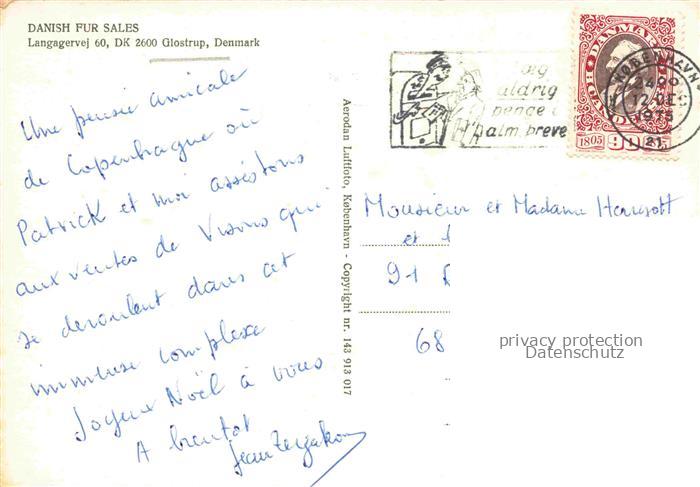 DANISH FUR SALES
Langagervej 60, DK 2600 Glostrup, Denmark
Une pensée amicale
de Copenhague où
Patrick et moi assistons
aux ventes de Visons qui
se deroulent dans cet
immense complexe
Joyeux Noël à vous
A bientot
Jean
Aerodan Luftfoto, København - Copyright nr. 143 913 017
læg
aldrig
penge i
alm. breve
DANMARK
1805
90
KØBENHAVN
12 DEC
1975
21
Monsieur et Madame
et
91
68
privacy protection
Datenschutz